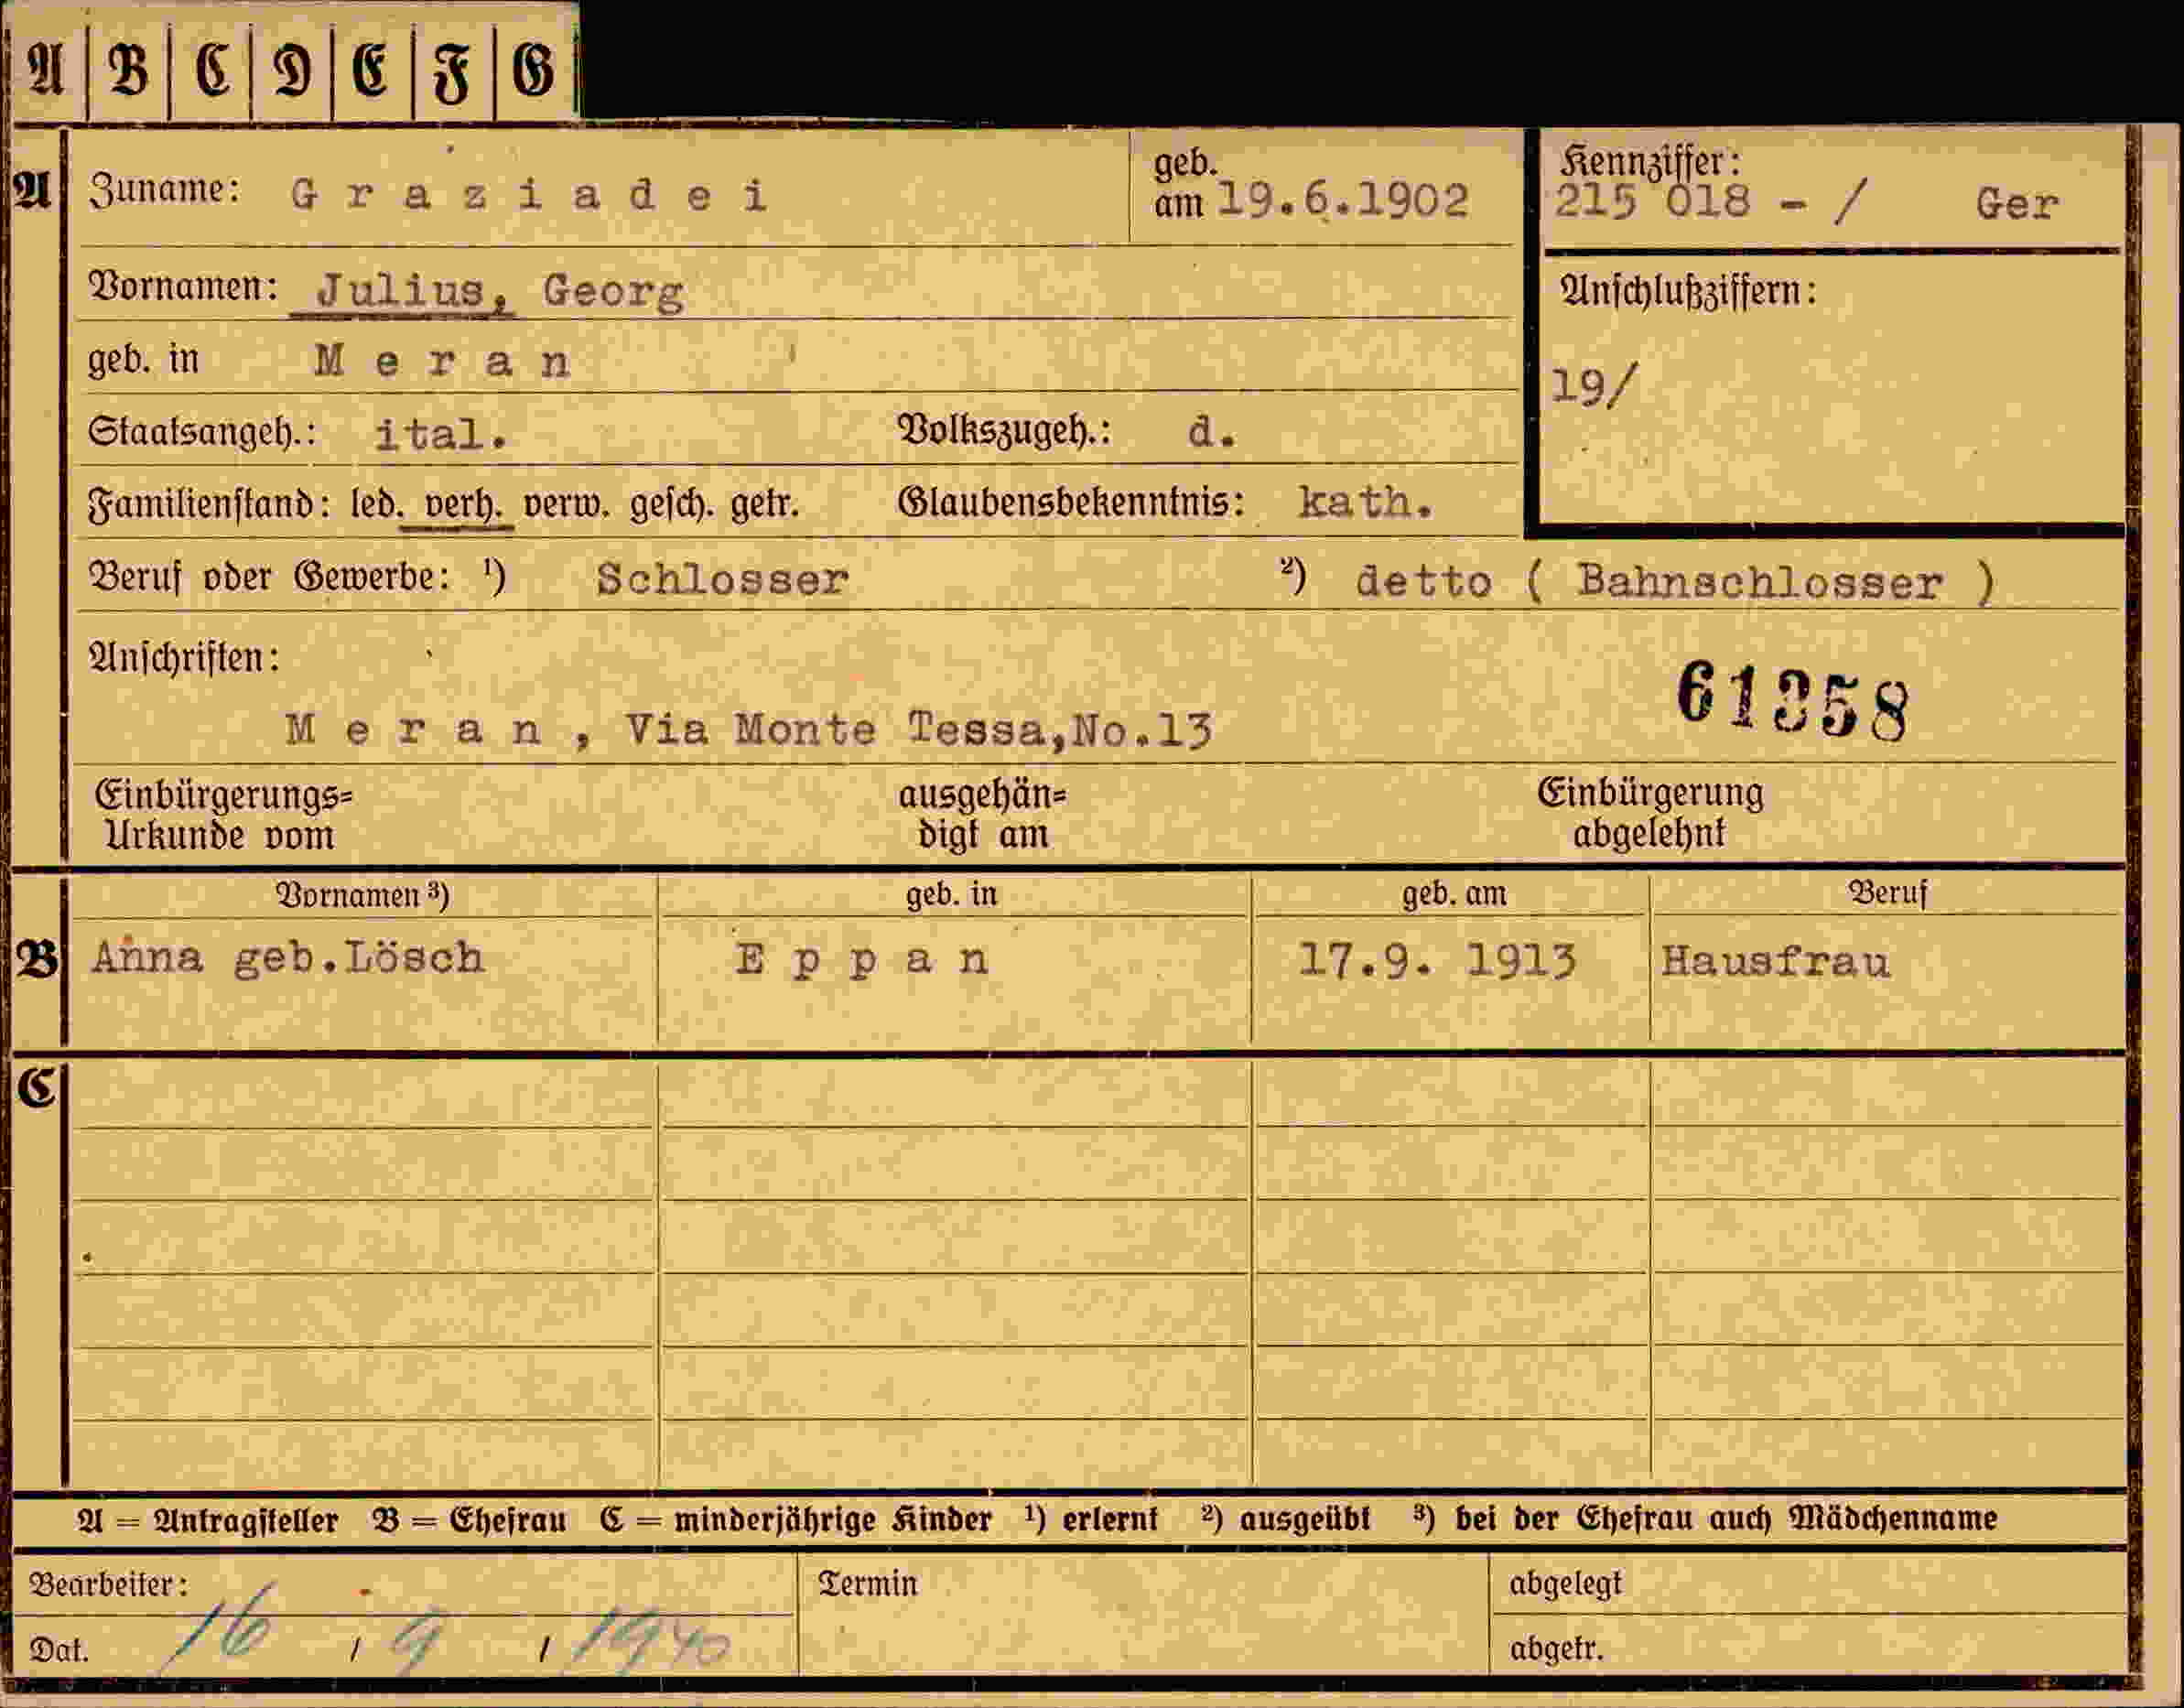 A B C D E F G
A Zuname: Graziadei geb. am 19.6.1902 Kennziffer: 215 018 - / Ger
Vornamen: Julius, Georg Anschlußziffern:
geb. in Meran 19/
Staatsangeh.: ital. Volkszugeh.: d.
Familienstand: led. verh. verw. gesch. getr. Glaubensbekenntnis: kath.
Beruf oder Gewerbe: 1) Schlosser 2) detto ( Bahnschlosser )
Anschriften:
61358
Meran, Via Monte Tessa,No.13
Einbürgerungs= ausgehän= Einbürgerung
Urkunde vom digt am abgelehnt
Vornamen 3) geb. in geb. am Beruf
B Anna geb.Lösch Eppan 17.9. 1913 Hausfrau
C
A = Antragsteller B = Ehefrau C = minderjährige Kinder 1) erlernt 2) ausgeübt 3) bei der Ehefrau auch Mädchenname
Bearbeiter: Termin abgelegt
Dat. 16 / 9 / 1940 abgetr.